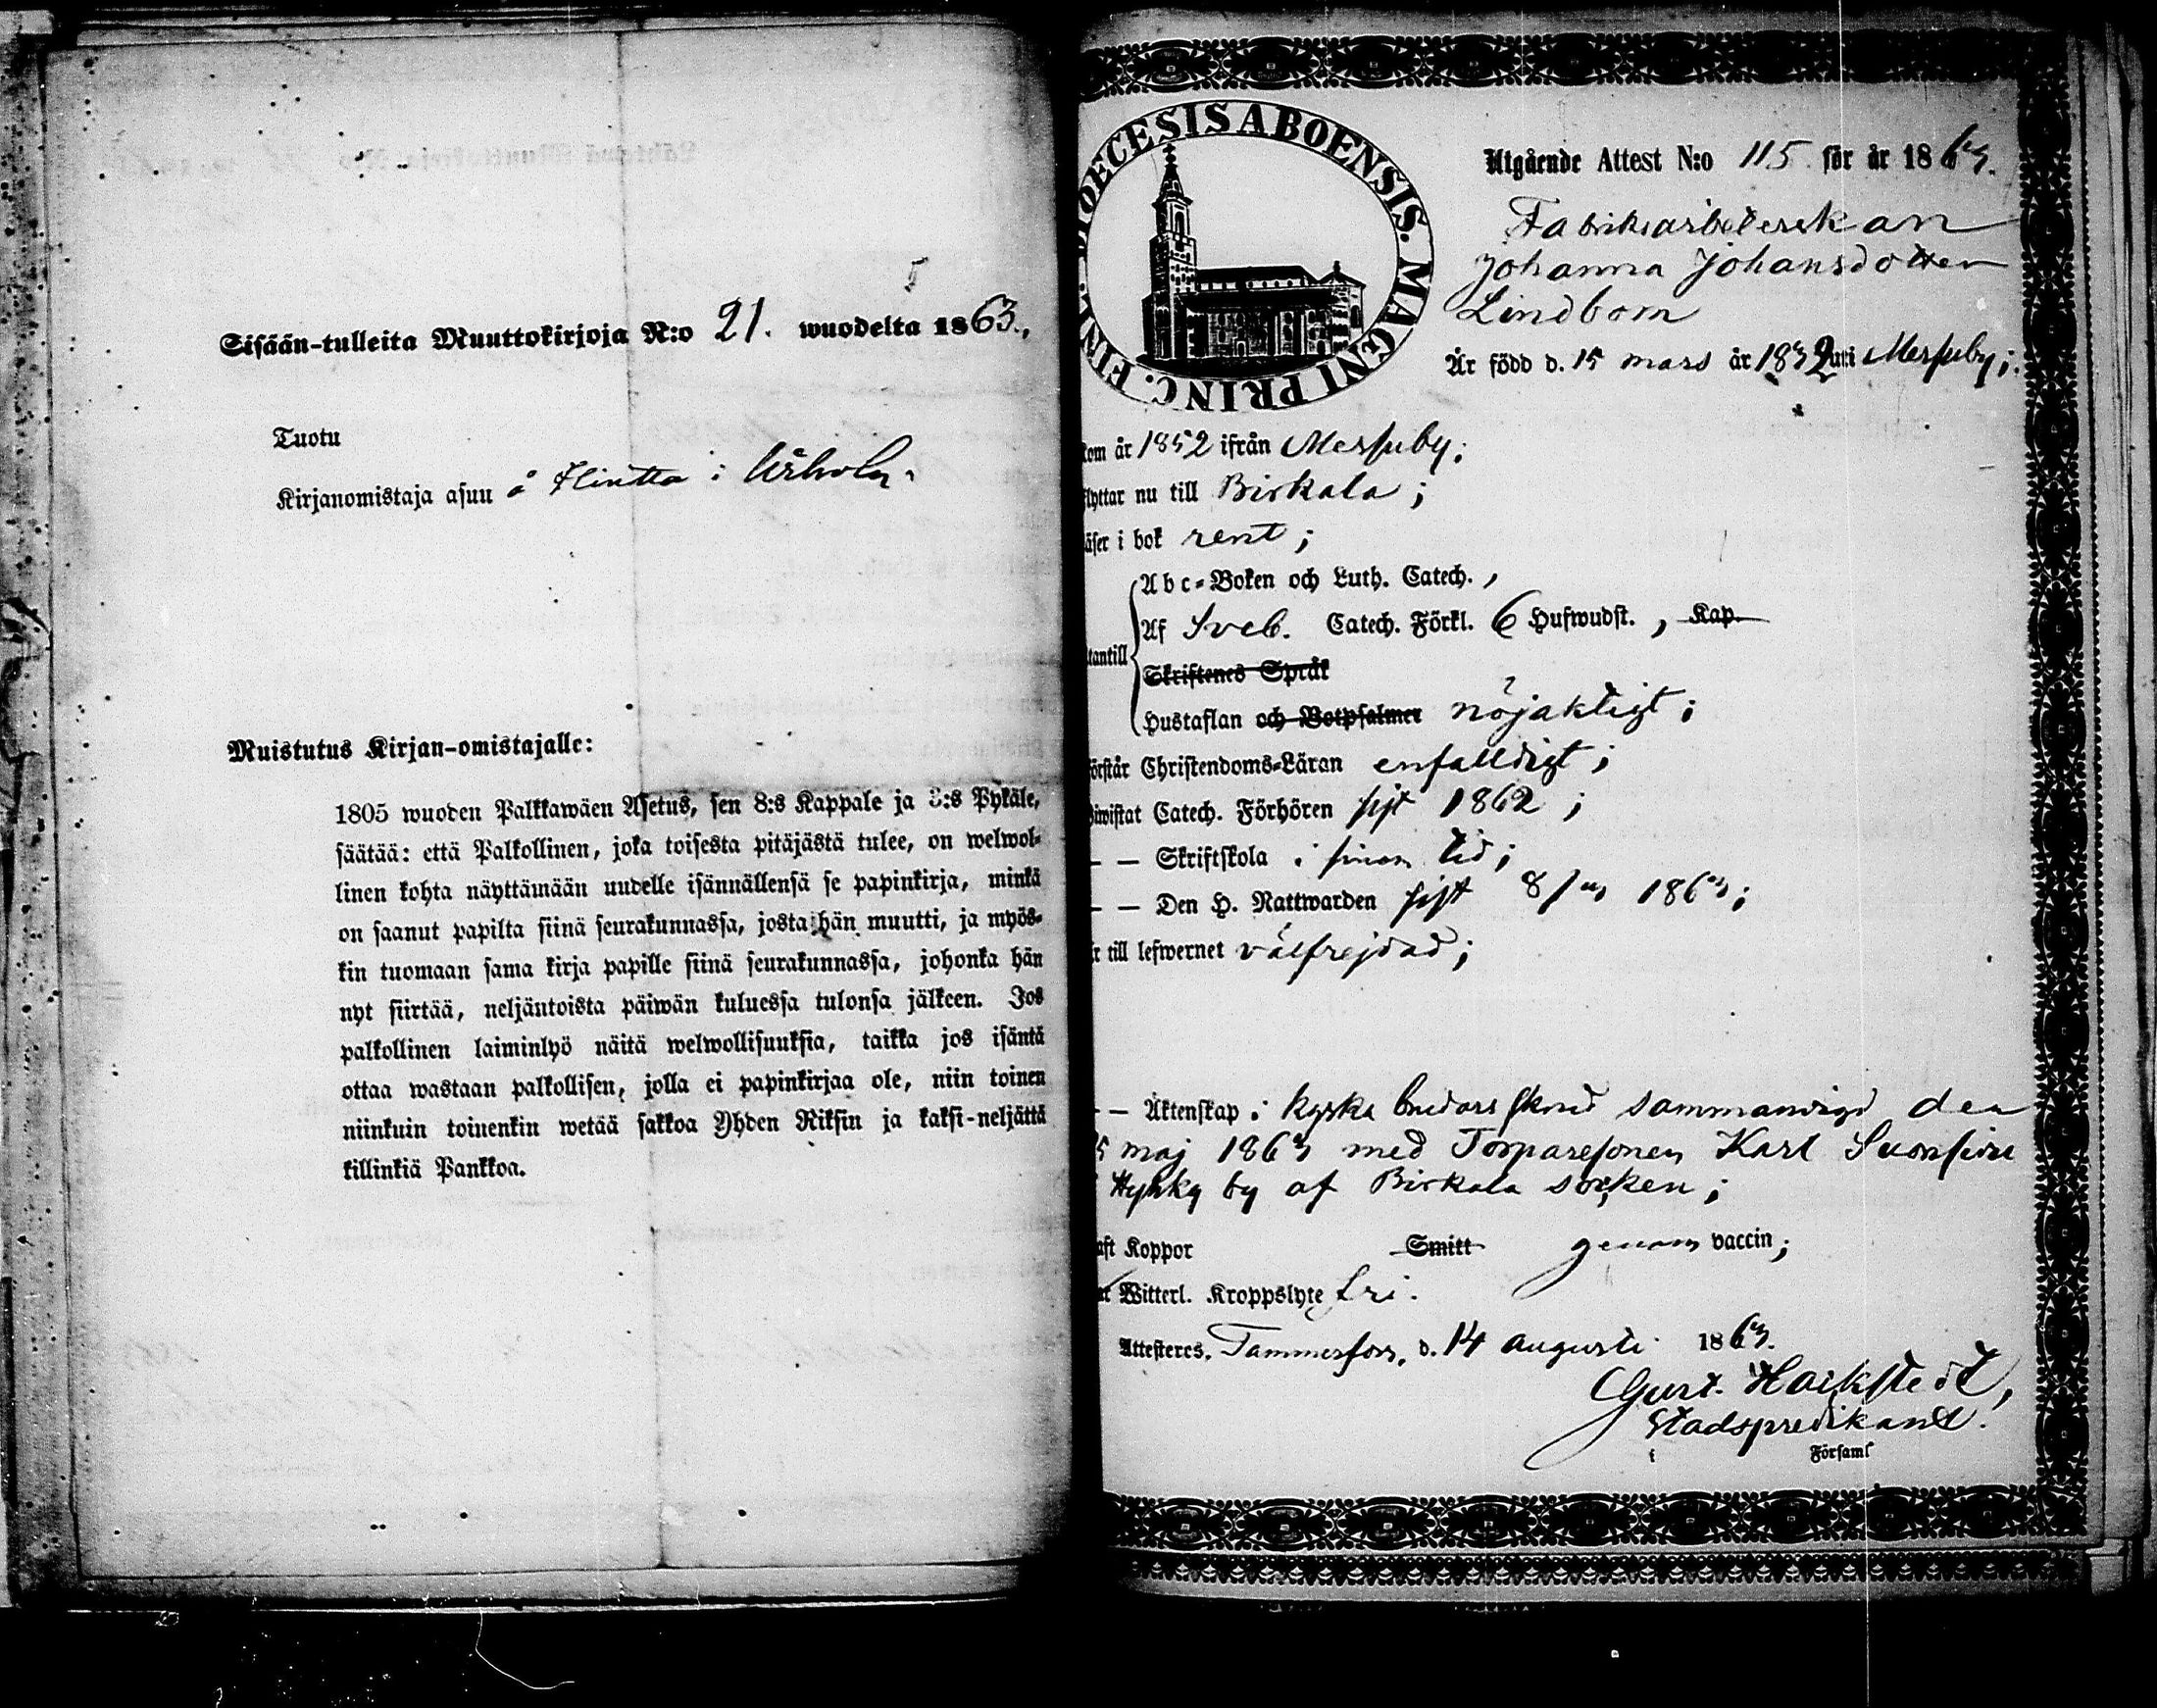 Sisään-tulleita Muuttokirjoja N:o 21. wuodelta 1863.,
Tuotu
Kirjanomistaja asuu å Hintta i
Muistutus Kirjan-omistajalle:
1805 wuoden Palkkawäen Asetus, sen 8:s Kappale ja 3:s Pykäle,
säätää: että Palkollinen, joka toisesta pitäjästä tulee, on welwol-
linen kohta näyttämään uudelle isännällensä se papinkirja, minkä
on saanut papilta siinä seurakunnassa, josta hän muutti, ja myös-
kin tuomaan sama kirja papille siinä seurakunnassa, johonka hän
nyt siirtää, neljäntoista päiwän kuluessa tulonsa jälkeen. Jos
palkollinen laiminlyö näitä welwollisuuksia, taikka jos isäntä
ottaa wastaan palkollisen, jolla ei papinkirjaa ole, niin toinen
niinkuin toinenkin wetää sakkoa Yhden Riksin ja kaksi-neljättä
killinkiä Pankkoa.
DIOECESIS ABOENSIS. MAGNI PRINC. FINL.
Utgående Attest N:o 115 för år 1863.
Fabriksarbeterskan
Johanna Johansdotter
Lindbom
Är född d. 15 mars år 1832 uti Messuby;
kom år 1852 ifrån Messuby;
flyttar nu till Birkala;
läser i bok rent;
Abc-Boken och Luth. Catech.,
Af Sveb. Catech. Förkl. 6 Hufwudst., Kap.
utantill
Skriftenes Språk
Hustaflan och Botpsalmer nöjaktigt;
förstår Christendoms-Läran enfalldigt;
biwistat Catech. Förhören sist 1862;
— — Skriftskola i sinom tid;
— — Den H. Nattwarden sist 8/3 1863;
är till lefwernet välfrejdad;
— — Äktenskap i kyrka sammanvigd den
5 maj 1863 med Torparesonen Karl
by af Birkala socken;
haft Koppor Smitt genom vaccin;
Witterl. Kroppslyte fri.
Attesteres, Tammerfors, d. 14 augusti 1863.
Gust.
Stadspredikant.
i Församl